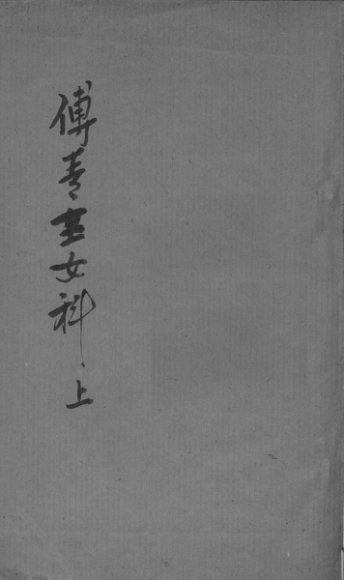 傅青主女科上